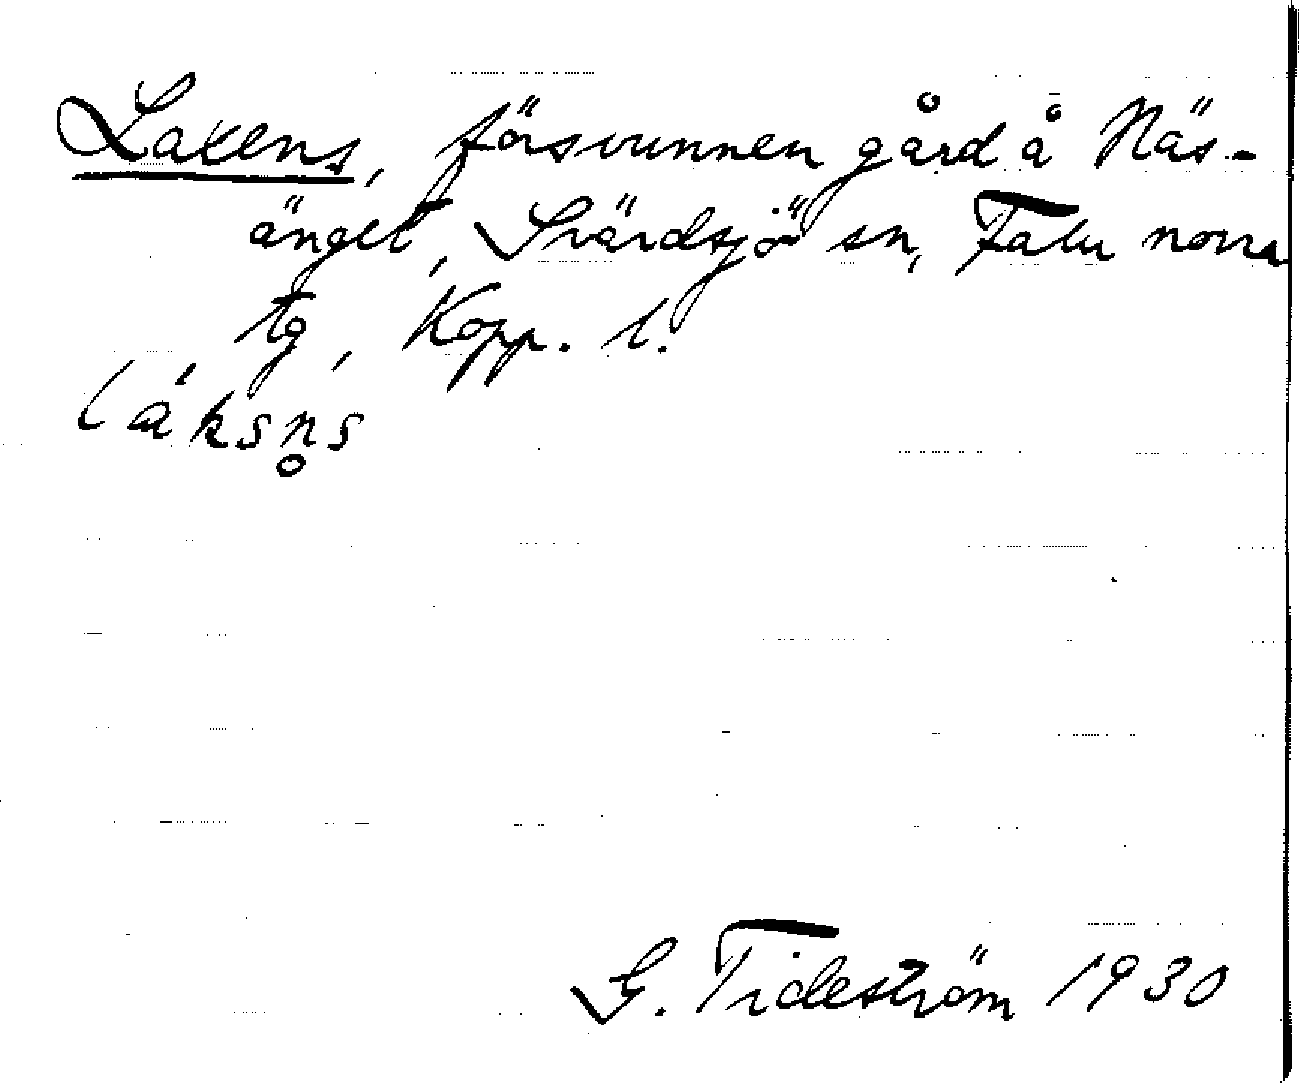 Laxens, försvunnen gård å Näs-
änget, Svärdsjö sn, Falu norra
tg, Kopp. l.
láksn̥s
G. Tideström 1930